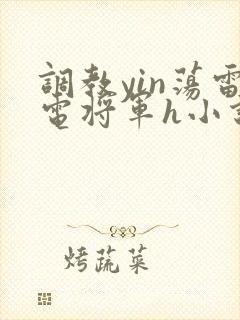 調教yin蕩雷
電將軍h小說
烤蔬菜